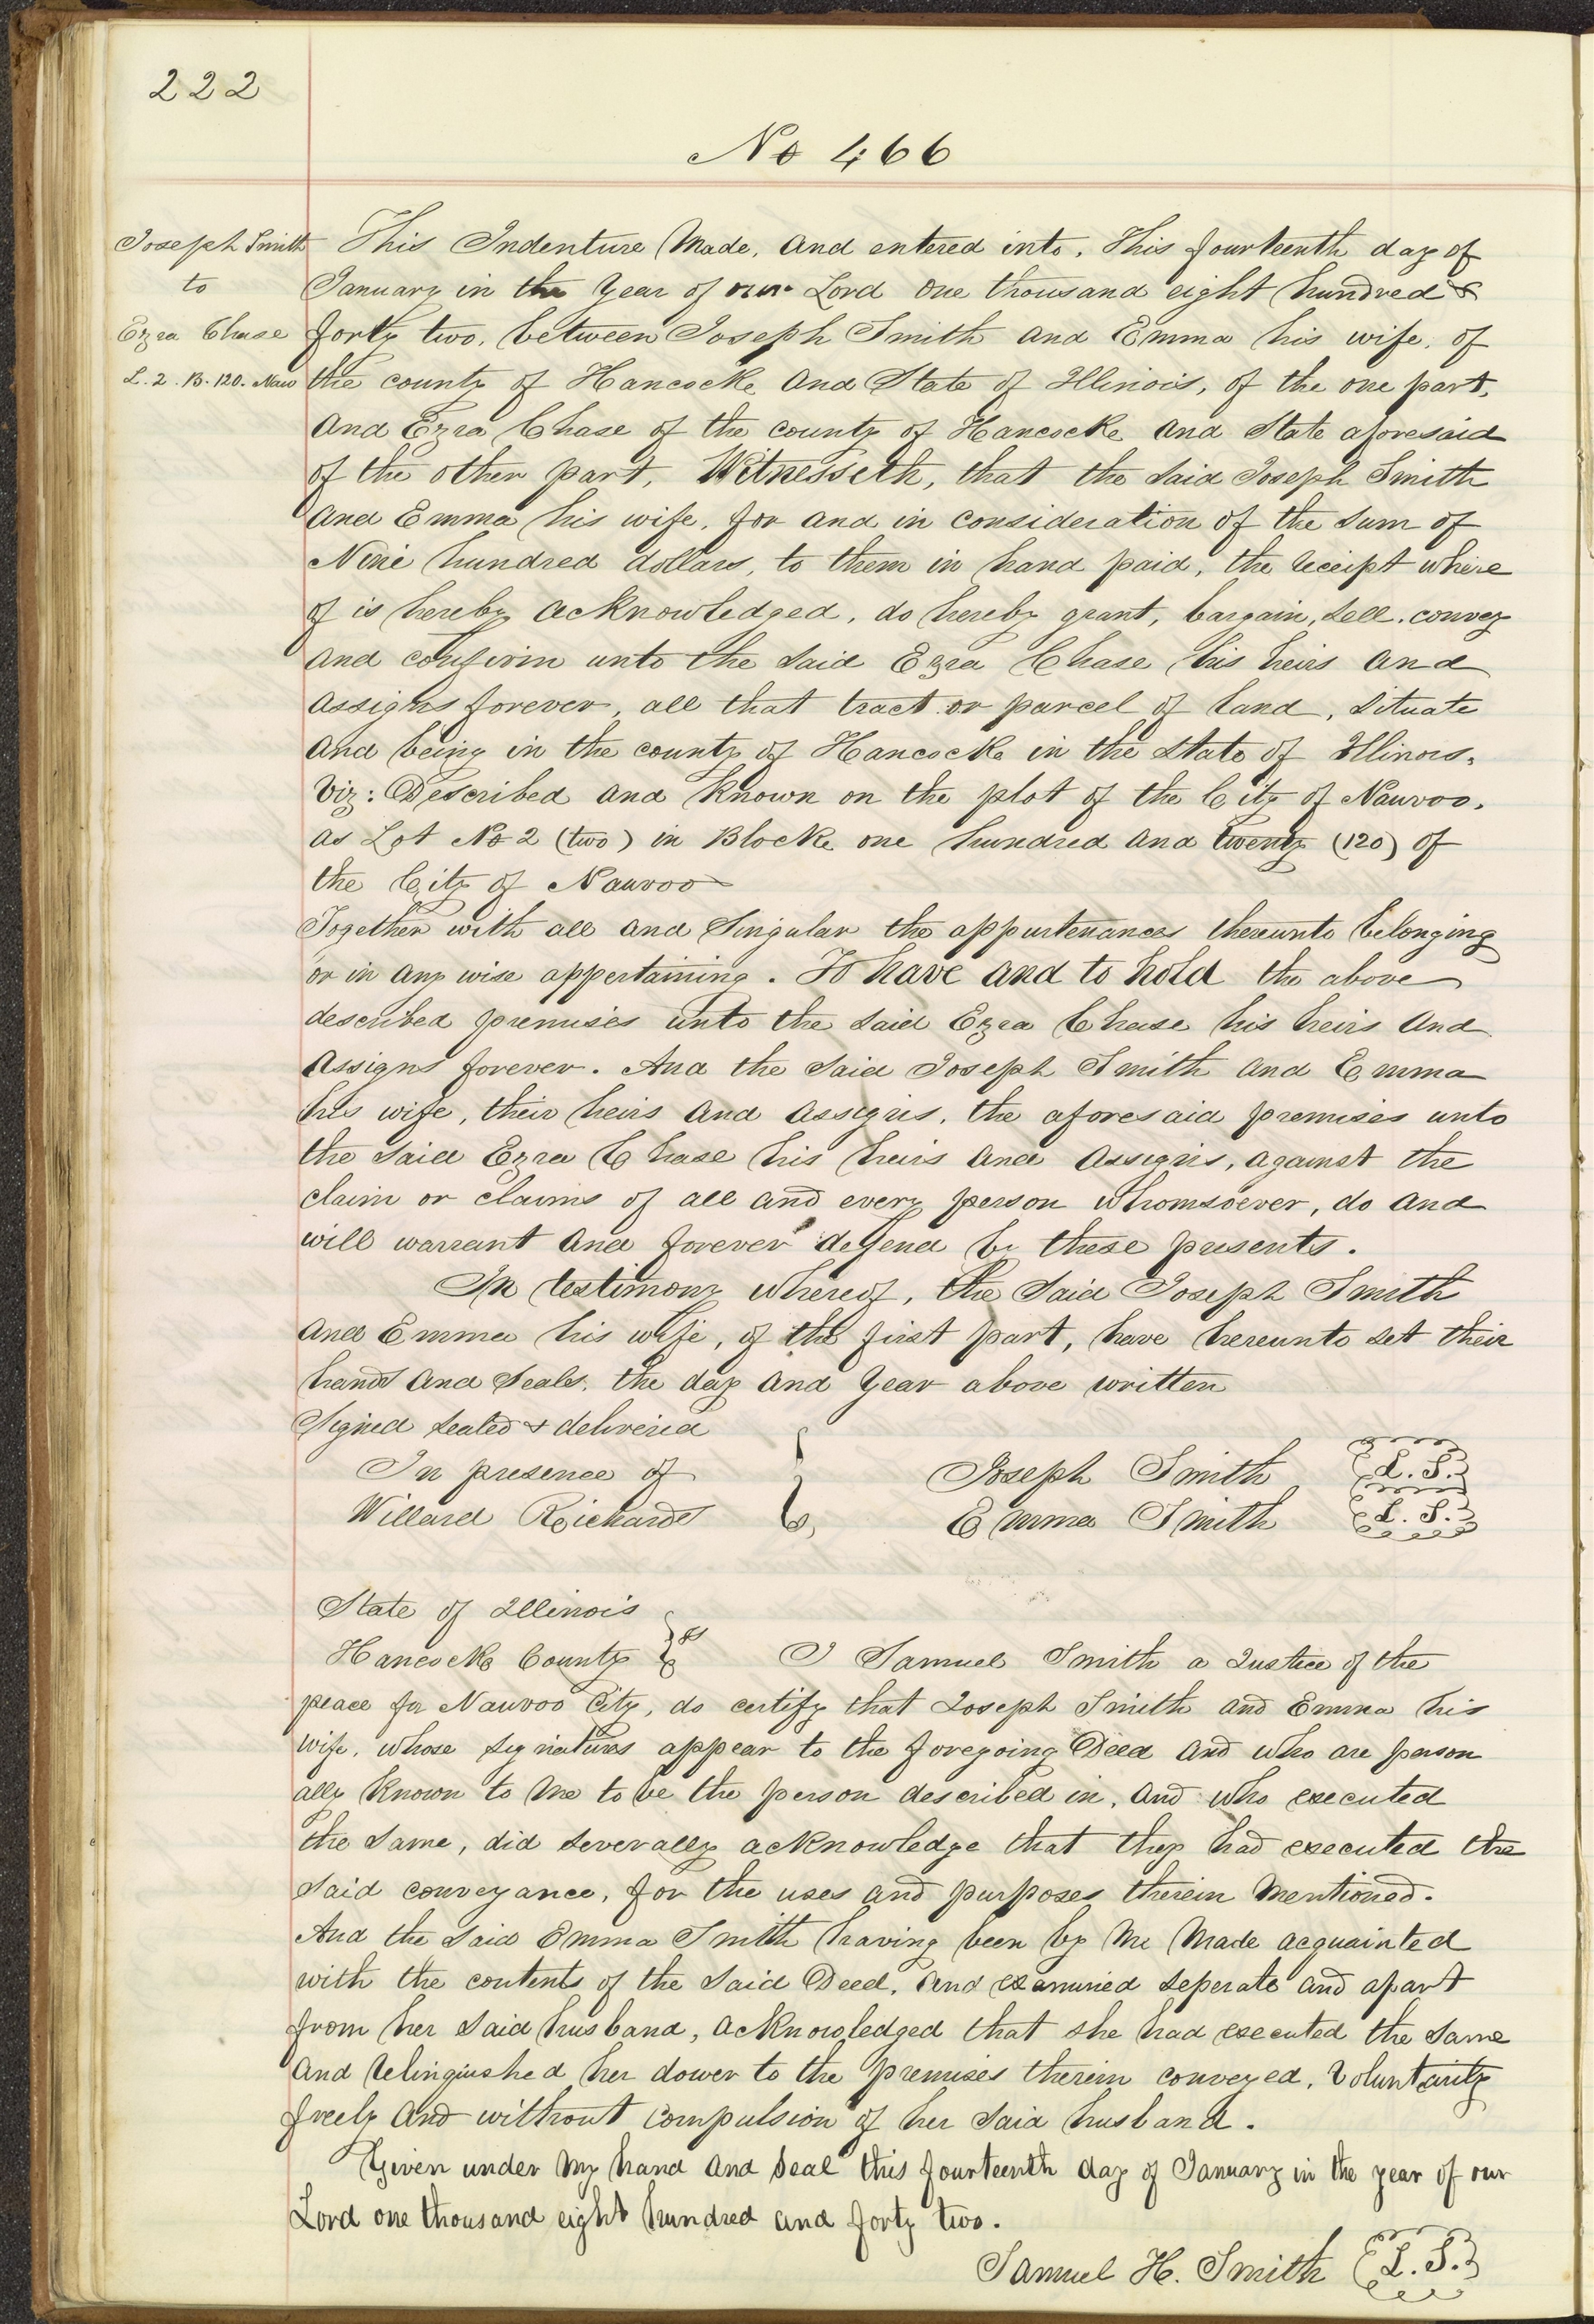 222
No 466
Joseph Smith
to
Ezra Chase
L. 2. B. 120. Nauv
This Indenture Made, and entered into, This fourteenth day of
January in the Year of our Lord One thousand eight hundred &
forty two, between Joseph Smith and Emma his wife, of
the county of Hancock and State of Illinois, of the one part,
and Ezra Chase of the county of Hancock and State aforesaid
of the other part, Witnesseth, that the said Joseph Smith
and Emma his wife, for and in consideration of the sum of
Nine hundred dollars, to them in hand paid, the receipt where
of is hereby acknowledged, do hereby grant, bargain, sell, convey
and confirm unto the said Ezra Chase his heirs and
assigns forever, all that tract or parcel of land, situate
and being in the county of Hancock in the state of Illinois,
Viz: Described and known on the plot of the City of Nauvoo,
as Lot No 2 (two) in Block one hundred and twenty (120) of
the City of Nauvoo
Together with all and Singular the appurtenances thereunto belonging
or in any wise appertaining. To have and to hold the above
described premises unto the said Ezra Chase his heirs and
assigns forever. And the said Joseph Smith and Emma
his wife, their heirs and assigns, the aforesaid premises unto
the said Ezra Chase his heirs and assigns, against the
claim or claims of all and every person whomsoever, do and
will warrant and forever defend by these presents.
In testimony whereof, the Said Joseph Smith
and Emma his wife, of the first part, have hereunto set their
hands and seals, the day and year above written
Signed sealed & delivered
In presence of
Willard Richards
Joseph Smith L. S.
Emma Smith L. S.
State of Illinois
Hancock County ss I Samuel Smith a Justice of the
peace for Nauvoo City, do certify that Joseph Smith and Emma his
wife, whose signatures appear to the foregoing Deed and who are person
ally known to me to be the person described in, and who executed
the same, did severally acknowledge that they had executed the
said conveyance, for the uses and purposes therein mentioned.
And the said Emma Smith having been by me made acquainted
with the contents of the said Deed, and examined seperate and apart
from her said husband, acknowledged that she had executed the same
and relinquished her dower to the premises therein conveyed, voluntarily
freely and without compulsion of her said husband.
Given under my hand and seal this fourteenth day of January in the year of our
Lord one thousand eight hundred and forty two.
Samuel H. Smith L. S.